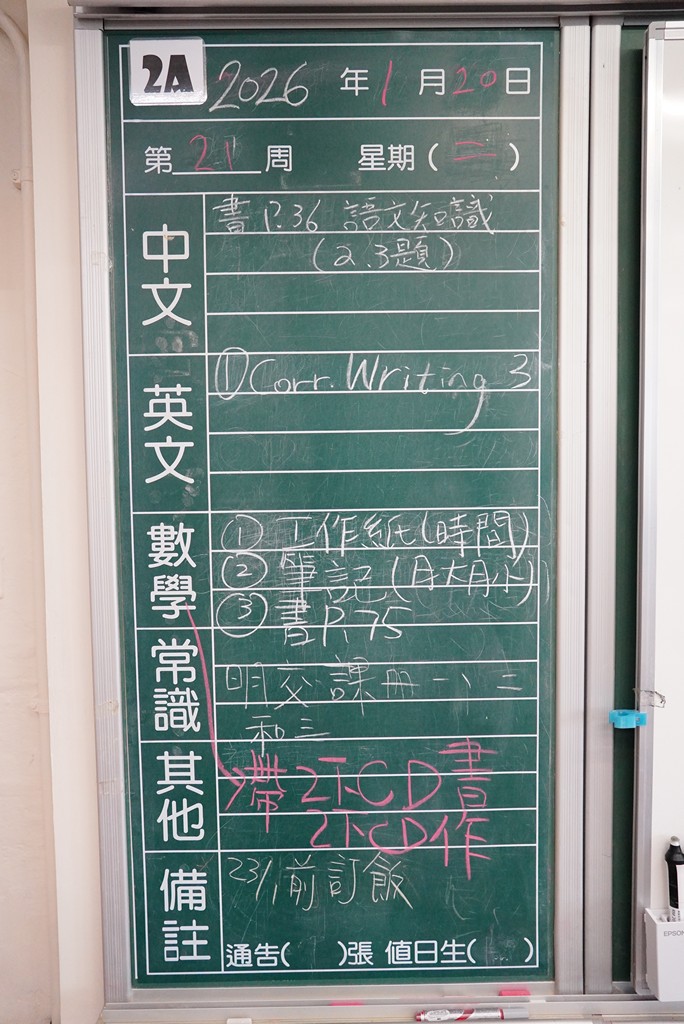 2A 2026 年 1 月 20 日
第 21 周 星期 ( 二 )
中文
書 P.36 語文知識
(2.3題)
英文
① Corr. Writing 3
數學
① 工作紙(時間)
② 筆記(月大月小)
③ 書P.75
常識
明交課冊一、二
和三
其他
滯 2下CD書
2下CD作
備註
23/1前訂飯
通告( )張 值日生( )
EPSON